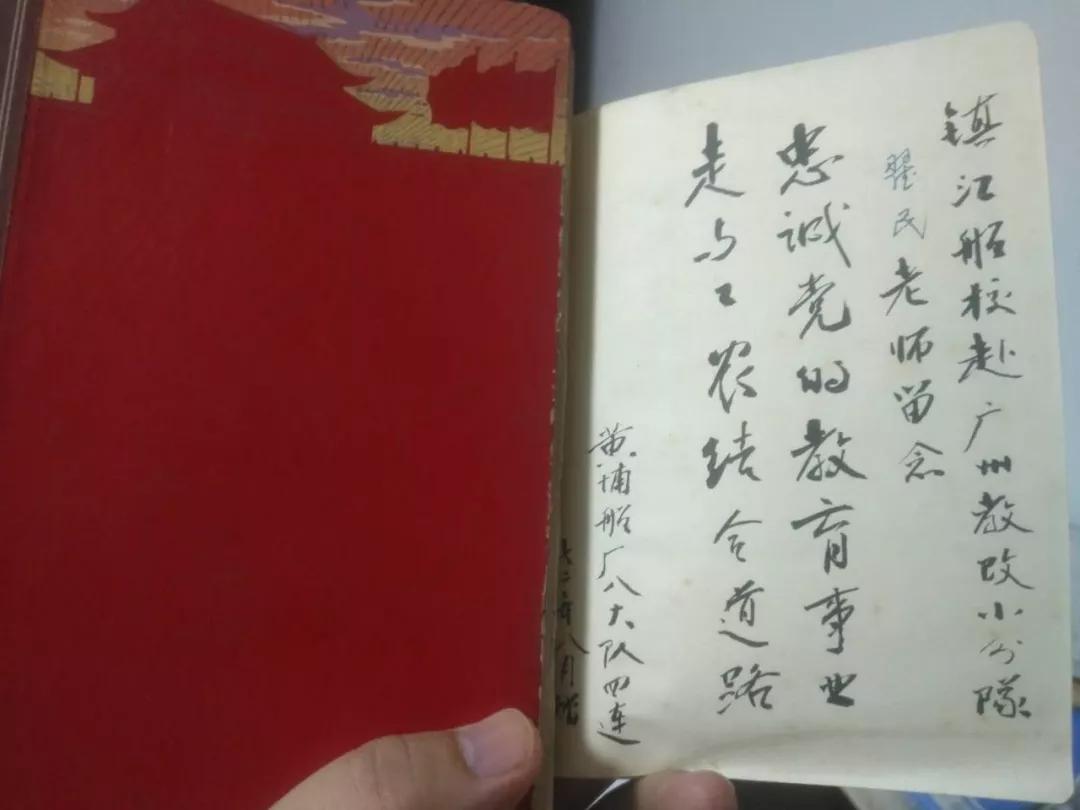 镇江船校赴广州教改小分隊
翟民老师留念
忠诚党的教育事业
走与工农结合道路
黄埔船厂八大队四连
七二年八月赠